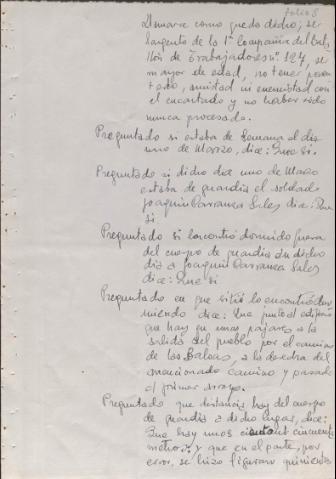 folio 8
llamarse como queda dicho; ser
sargento de la 1ª Compañia del Bata
llón de Trabajadores nº 127, ser
mayor de edad, no tener paren
tesco, amistad ni enemistad con
el encartado y no haber sido
nunca procesado.
Preguntado si estaba de semana el dia
uno de Marzo, dice: Que si.
Preguntado si dicho dia uno de Marzo
estaba de guardia el soldado
Joaquin Barranca Sales dice: Que
si
Preguntado si encontró dormido fuera
del cuerpo de guardia en dicho
dia a Joaquin Barranca Sales
dice: Que si
Preguntado en que sitio lo encontró dur
miendo dice: Que junto al edificio
que hay en unos pajares a la
salida del pueblo por el camino
de las Balsas, a la derecha del
mencionado camino y pasado
el primer arroyo.
Preguntado que distancia hay del cuerpo
de guardia a dicho lugar, dice:
Que hay unos ciento cincuenta
metros y que en el parte, por
error, se hizo figurar quinientos